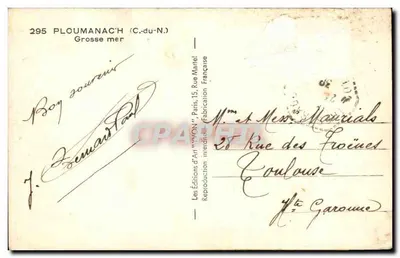 295 PLOUMANAC'H (C.-du-N.)
Grosse mer
Bon souvenir
J. Bernard
Les Éditions d'Art "YVON", Paris, 15, Rue Martel
Reproduction interdite Fabrication Française
Mme et Messr Mauriais
28 Rue des Troënes
Toulouse
Hte Garonne